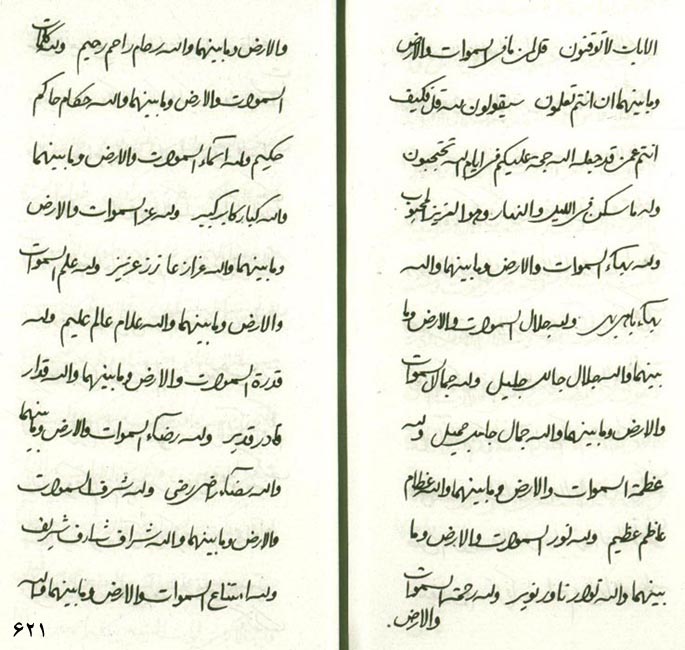 الايات لا توقنون قل لمن ما في السموات والارض
وما بينهما ان انتم تعلمون سيقولون لله قل فكيف
انتم عمن قد جعله الله حجة عليكم في ايام الله تحتجبون
وله ما سكن في الليل والنهار وهو العزيز المحبوب
ولله بهاء السموات والارض وما بينهما والله
بهاء باهي بهي ولله جلال السموات والارض وما
بينهما والله جلال جالل جليل ولله جمال السموات
والارض وما بينهما والله جمال جامل جميل ولله
عظمة السموات والارض وما بينهما والله عظام
عاظم عظيم ولله نور السموات والارض وما
بينهما والله نوار ناور نوير ولله رحمة السموات
والارض
والارض وما بينهما والله رحام راحم رحيم ولله كلمات
السموات والارض وما بينهما والله حكام حاكم
حكيم ولله اسماء السموات والارض وما بينهما
والله كبار كابر كبير ولله عز السموات والارض
وما بينهما والله عزاز عازز عزيز ولله علم السموات
والارض وما بينهما والله علام عالم عليم ولله
قدرة السموات والارض وما بينهما والله قدار
قادر قدير ولله رضاء السموات والارض وما بينهما
والله رضاء راضي رضي ولله شرف السموات
والارض وما بينهما والله شراف شارف شريف
ولله امتناع السموات والارض وما بينهما والله
۶۲۱